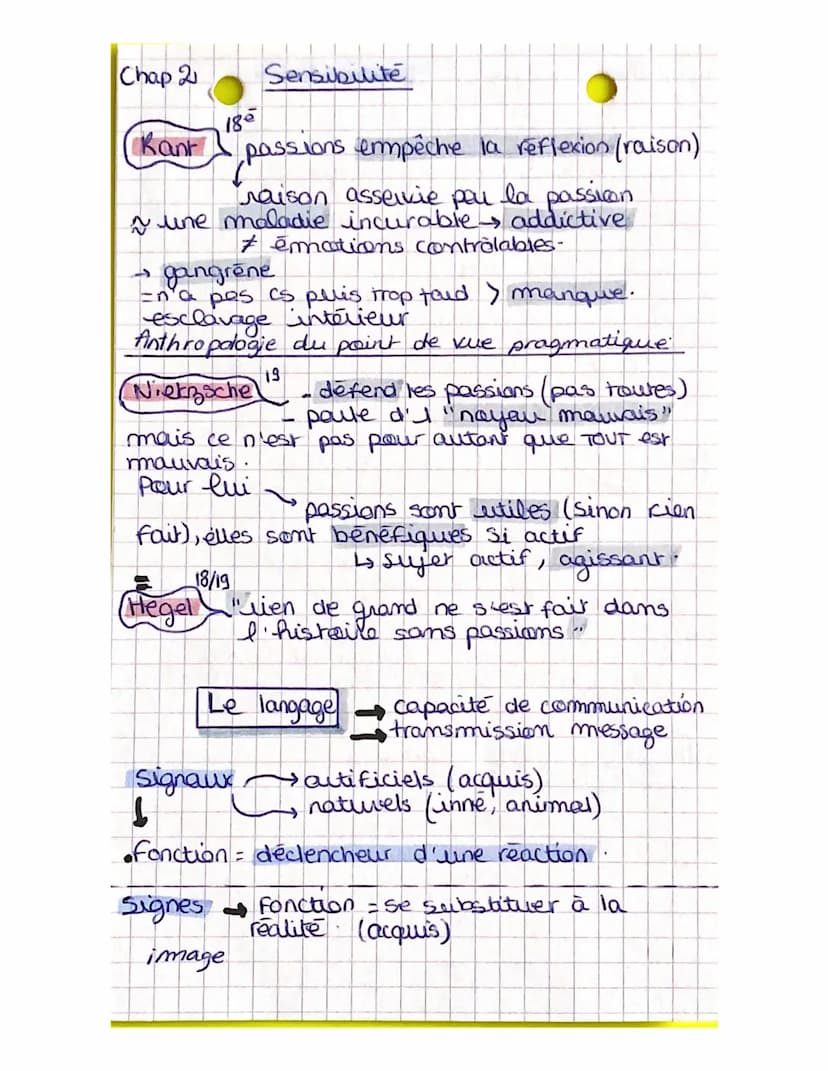 Chap 2 Sensibilité
18e
Kant passions empêche la réflexion (raison)
raison asservie par la passion
≈ une maladie incurable → addictive
≠ émotions contrôlables.
→ gangrène
= n'a pas cs puis trop tard > manque.
esclavage intérieur
Anthropologie du point de vue pragmatique.
Nietzsche 19 - défend les passions (pas toutes)
- parle d'1 "noyau mauvais"
mais ce n'est pas pour autant que TOUT est
mauvais.
Pour lui
passions sont utiles (sinon rien
fait), elles sont bénéfiques si actif
↳ sujet actif, agissant.
= 18/19
Hegel "rien de grand ne s'est fait dans
l'histoire sans passions"
Le langage → capacité de communication
→ transmission message
Signaux → artificiels (acquis)
→ naturels (inné, animal)
↓
.Fonction = déclencheur d'une réaction.
Signes → Fonction = se substituer à la
réalité. (acquis)
image